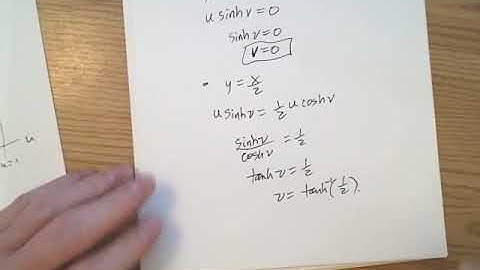 u sinh v = 0
sinh v = 0
v = 0
• y = x/2
u sinh v = 1/2 u cosh v
sinh v / cosh v = 1/2
tanh v = 1/2
v = tanh⁻¹(1/2).
u